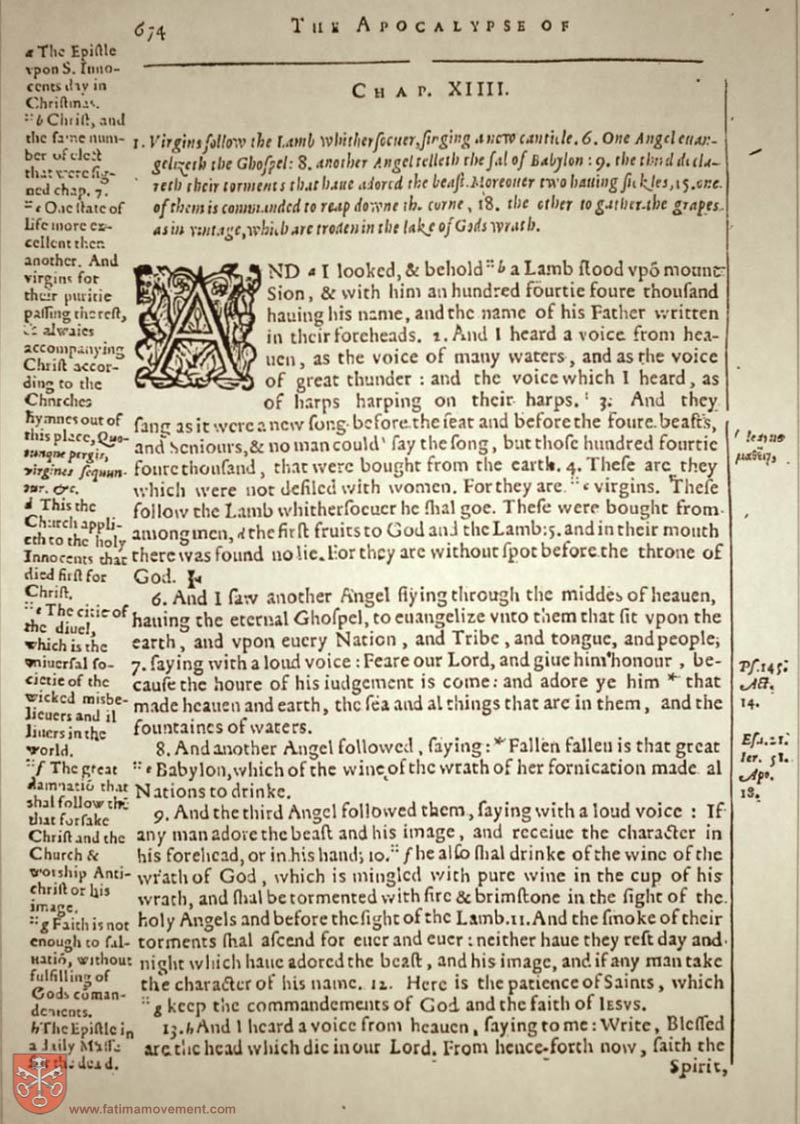 674
THE APOCALYPSE OF
CHAP. XIIII.
1. Virgins follow the Lamb whitherſoeuer, ſinging a new canticle. 6. One Angel euan-
gelizeth the Ghoſpel: 8. another Angel telleth the fal of Babylon: 9. the third decla-
reth their torments that haue adored the beaſt. Moreouer two hauing ſickles, 15. one
of them is commanded to reap downe the corne, 18. the other to gather the grapes
as in vintage, which are troden in the lake of Gods wrath.
AND a I looked, & behold "b a Lamb ſtood vpõ mount
Sion, & with him an hundred fourtie foure thouſand
hauing his name, and the name of his Father written
in their foreheads. 2. And I heard a voice from hea-
uen, as the voice of many waters, and as the voice
of great thunder: and the voice which I heard, as
of harps harping on their harps. 3. And they
ſang as it were a new ſong before the ſeat and before the foure beaſts,
and Seniours, & no man could ' ſay the ſong, but thoſe hundred fourtie
foure thouſand, that were bought from the earth. 4. Theſe are they
which were not defiled with women. For they are "c virgins. Theſe
follow the Lamb whitherſoeuer he ſhal goe. Theſe were bought from
among men, d the firſt fruits to God and the Lamb: 5. and in their mouth
there was found no lie. For they are without ſpot before the throne of
God.
6. And I ſaw another Angel flying through the middes of heauen,
hauing the eternal Ghoſpel, to euangelize vnto them that ſit vpon the
earth, and vpon euery Nation, and Tribe, and tongue, and people;
7. ſaying with a loud voice: Feare our Lord, and giue him honour, be-
cauſe the houre of his iudgement is come: and adore ye him * that
made heauen and earth, the ſea and al things that are in them, and the
fountaines of waters.
8. And another Angel followed, ſaying: * Fallen fallen is that great
"e Babylon, which of the wine of the wrath of her fornication made al
Nations to drinke.
9. And the third Angel followed them, ſaying with a loud voice: If
any man adore the beaſt and his image, and receiue the character in
his forehead, or in his hand; 10. "f he alſo ſhal drinke of the wine of the
wrath of God, which is mingled with pure wine in the cup of his
wrath, and ſhal be tormented with fire & brimſtone in the ſight of the
holy Angels and before the ſight of the Lamb. 11. And the ſmoke of their
torments ſhal aſcend for euer and euer: neither haue they reſt day and
night which haue adored the beaſt, and his image, and if any man take
the character of his name. 12. Here is the patience of Saints, which
"g keep the commandements of God and the faith of IESVS.
13. h And I heard a voice from heauen, ſaying to me: Write, Bleſſed
are the head which die in our Lord. From hence-forth now, ſaith the
Spirit,
a The Epiſtle
vpon S. Inno-
cents day in
Chriſtmas.
"b Chriſt, and
the ſame num-
ber of elect
that were ſig-
ned chap. 7.
"c One ſtate of
life more ex-
cellent then
another. And
virgins for
their puritie
paſſing the reſt,
alwaies
accompanying
Chriſt accor-
ding to the
Churches
hymnes out of
this place, Quo-
cunque pergis,
virgines ſequun-
tur. &c.
d This the
Church appli-
eth to the holy
Innocents that
died firſt for
Chriſt.
"e The citie of
the diuel,
which is the
vniuerſal ſo-
cietie of the
wicked misbe-
lieuers and il
liuers in the
world.
"f The great
damnatiõ that
shal follow thē
that forſake
Chriſt and the
Church &
worship Anti-
chriſt or his
image.
"g Faith is not
enough to ſal-
uatiõ, without
fulfilling of
Gods coman-
dements.
h The Epiſtle in
a daily Maſſe
for the dead.
μαθεῖν,
Pſ. 145.
Act.
14.
Eſa. 21.
Ier. 51.
Apo.
18.
www.fatimamovement.com